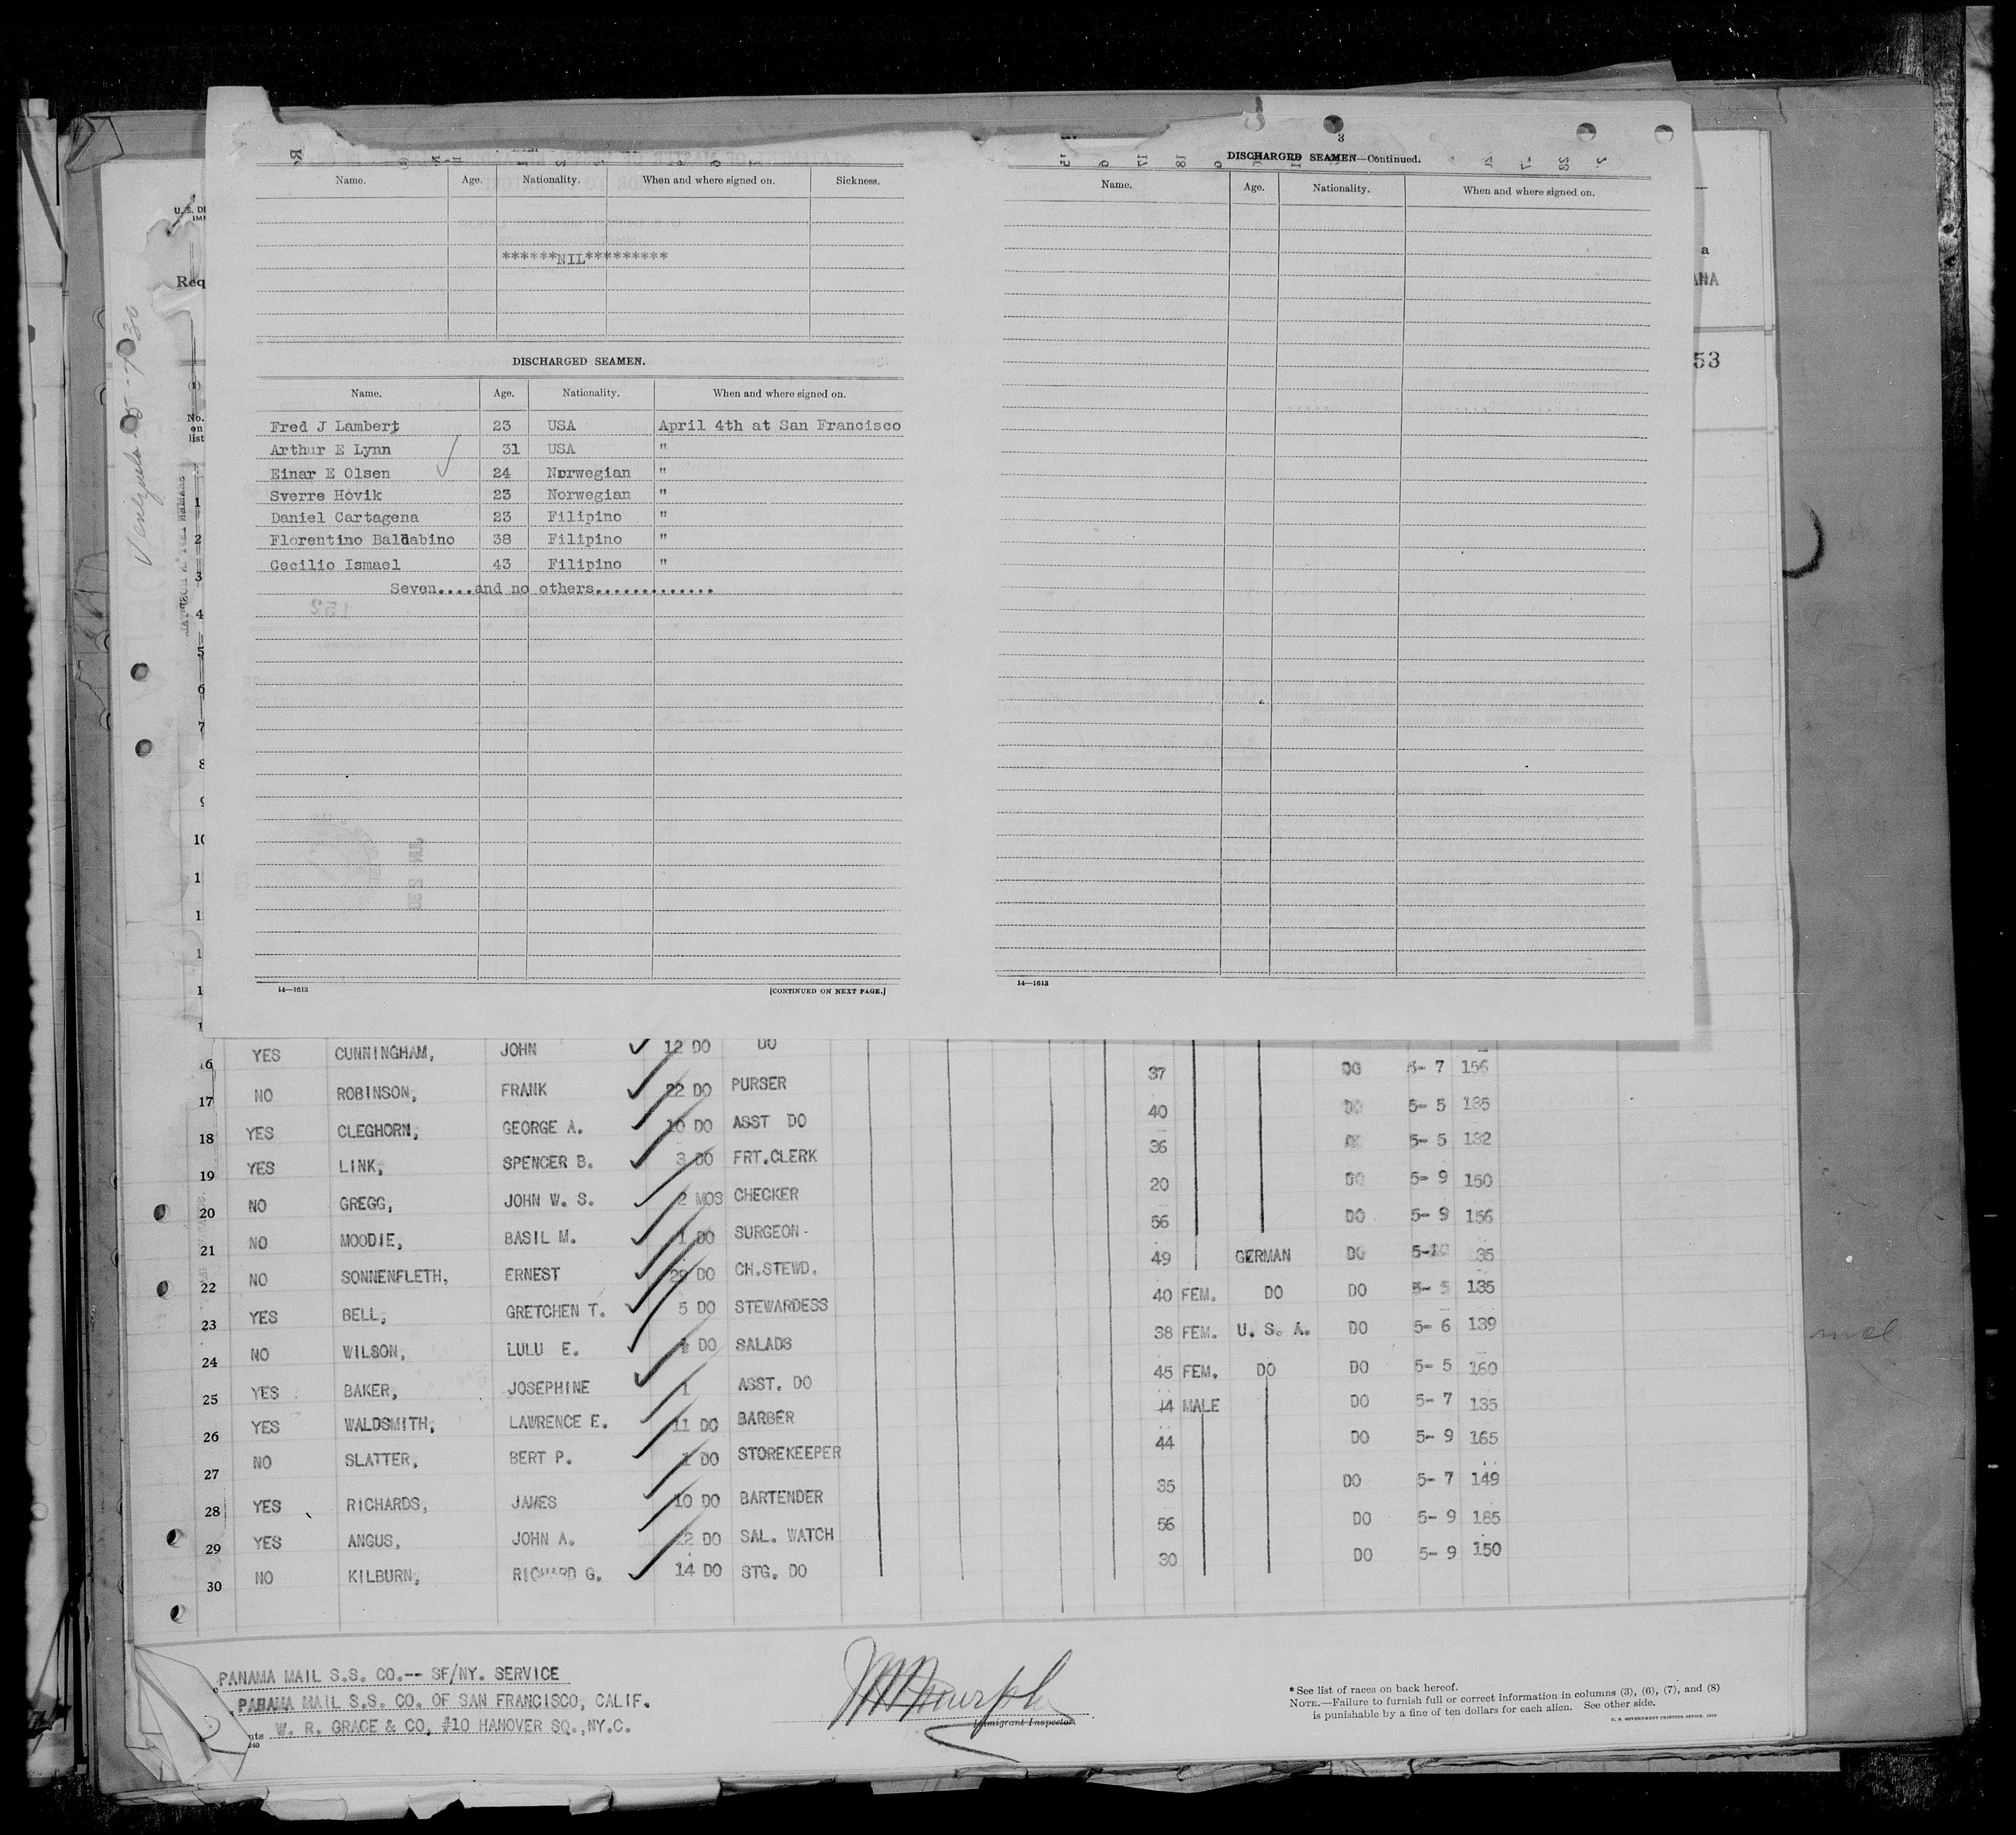 3
DISCHARGED SEAMEN—Continued.
Name. Age. Nationality. When and where signed on. Sickness.
Name. Age. Nationality. When and where signed on.
******NIL*********
DISCHARGED SEAMEN.
Name. Age. Nationality. When and where signed on.
Fred J Lambert 23 USA April 4th at San Francisco
Arthur E Lynn 31 USA "
Einar E Olsen 24 Norwegian "
Sverre Hovik 23 Norwegian "
Daniel Cartagena 23 Filipino "
Florentino Baldabino 38 Filipino "
Cecilio Ismael 43 Filipino "
Seven....and no others.............
14—1613 [CONTINUED ON NEXT PAGE.]
14—1613
U. S. DE
IMM
Req
No.
on
list
1
2
3
4
5
6
7
8
9
10
a
ANA
53
16 YES CUNNINGHAM, JOHN 12 DO DO 37 DO 5- 7 156
17 NO ROBINSON, FRANK 22 DO PURSER 40 DO 5- 5 135
18 YES CLEGHORN, GEORGE A. 10 DO ASST DO 36 5- 5 132
19 YES LINK, SPENCER B. 3 DO FRT.CLERK 20 DO 5- 9 150
20 NO GREGG, JOHN W. S. 2 MOS CHECKER 56 DO 5- 9 156
21 NO MOODIE, BASIL M. 1 DO SURGEON 49 GERMAN DO 5-10 35
22 NO SONNENFLETH, ERNEST 29 DO CH.STEWD. 40 FEM. DO DO 5- 5 135
23 YES BELL, GRETCHEN T. 5 DO STEWARDESS 38 FEM. U. S. A. DO 5- 6 139
24 NO WILSON, LULU E. DO SALADS 45 FEM. DO DO 5- 5 160
25 YES BAKER, JOSEPHINE 1 ASST. DO 14 MALE DO 5- 7 135
26 YES WALDSMITH, LAWRENCE E. 11 DO BARBER 44 DO 5- 9 165
27 NO SLATTER, BERT P. 1 DO STOREKEEPER 35 DO 5- 7 149
28 YES RICHARDS, JAMES 10 DO BARTENDER 56 DO 5- 9 185
29 YES ANGUS, JOHN A. 12 DO SAL. WATCH 30 DO 5- 9 150
30 NO KILBURN, RICHARD G. 14 DO STG. DO
PANAMA MAIL S.S. CO.-- SF/NY. SERVICE
PANAMA MAIL S.S. CO. OF SAN FRANCISCO, CALIF.
nts W. R. GRACE & CO, #10 HANOVER SQ.,NY.C.
240
Immigrant Inspector.
*See list of races on back hereof.
NOTE.—Failure to furnish full or correct information in columns (3), (6), (7), and (8)
is punishable by a fine of ten dollars for each alien. See other side.